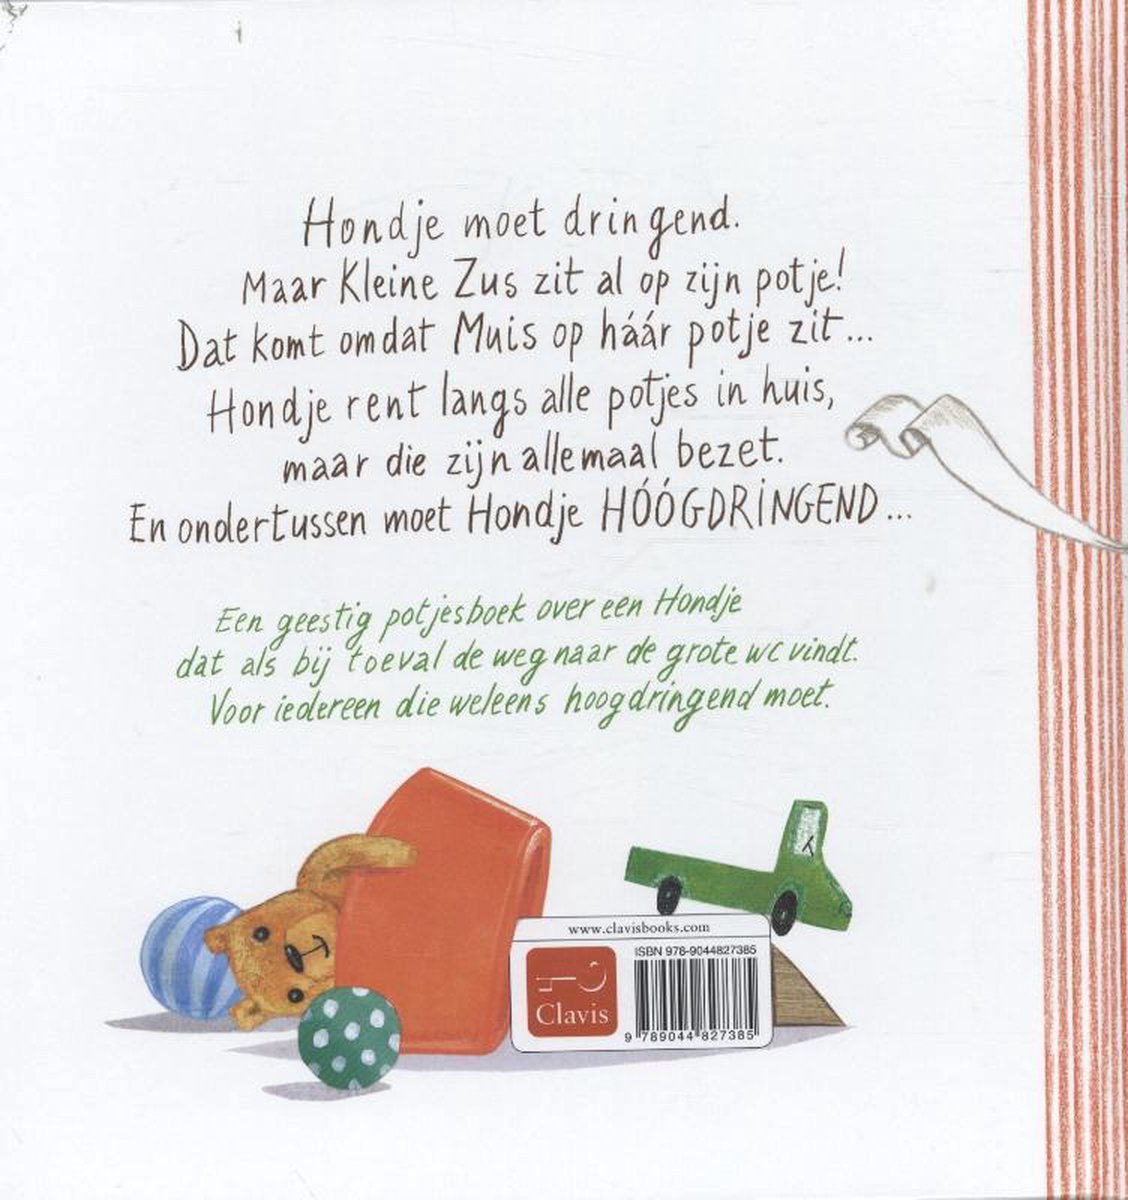 Hondje moet dringend.
Maar Kleine Zus zit al op zijn potje!
Dat komt omdat Muis op háár potje zit...
Hondje rent langs alle potjes in huis,
maar die zijn allemaal bezet.
En ondertussen moet Hondje HÓÓGDRINGEND...
Een geestig potjesboek over een Hondje
dat als bij toeval de weg naar de grote wc vindt.
Voor iedereen die weleens hoogdringend moet.
www.clavisbooks.com
ISBN 978-9044827385
Clavis
9 789044 827385